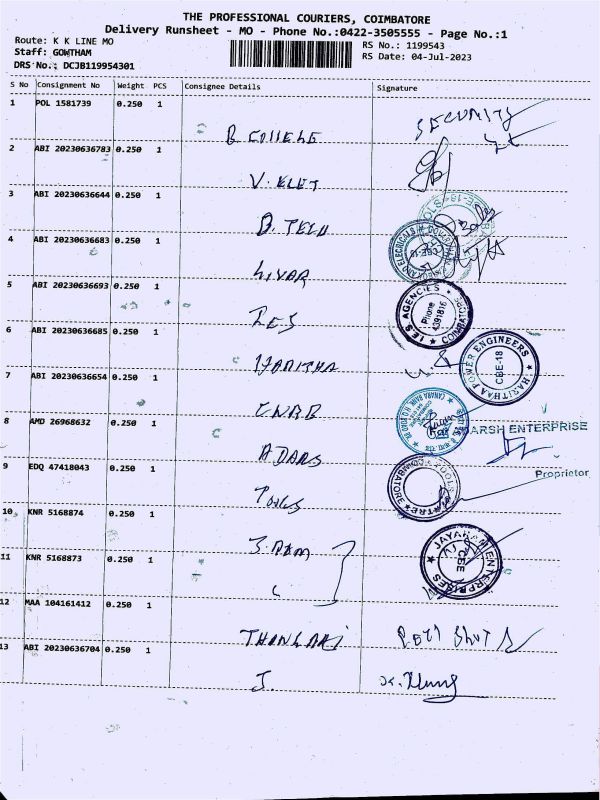 THE PROFESSIONAL COURIERS, COIMBATORE
Delivery Runsheet - MO - Phone No.:0422-3505555 - Page No.:1
Route: K K LINE MO
RS No.: 1199543
Staff: GOWTHAM
RS Date: 04-Jul-2023
DRS No.: DCJB119954301
S No Consignment No Weight PCS Consignee Details Signature
1 POL 1581739 0.250 1
B. COLLEGE SECURITY
2 ABI 20230636783 0.250 1
3 ABI 20230636644 0.250 1
B. TECH
4 ABI 20230636683 0.250 1
5 ABI 20230636693 0.250 1
LES AGENCIES Phone 4391816 COIMBATORE
6 ABI 20230636685 0.250 1
HARITHA HARITHAA POWER ENGINEERS CBE-18
7 ABI 20230636654 0.250 1
CNRB CANARA BANK
8 AMD 26968632 0.250 1
ARSH ENTERPRISE
ADARS
Proprietor
9 EDQ 47418043 0.250 1
COIMBATORE
10 KNR 5168874 0.250 1
J. RAM JAYARAM ENTERPRISES CBE
11 KNR 5168873 0.250 1
12 MAA 104161412 0.250 1
THANGARAJ
13 ABI 20230636704 0.250 1
J.